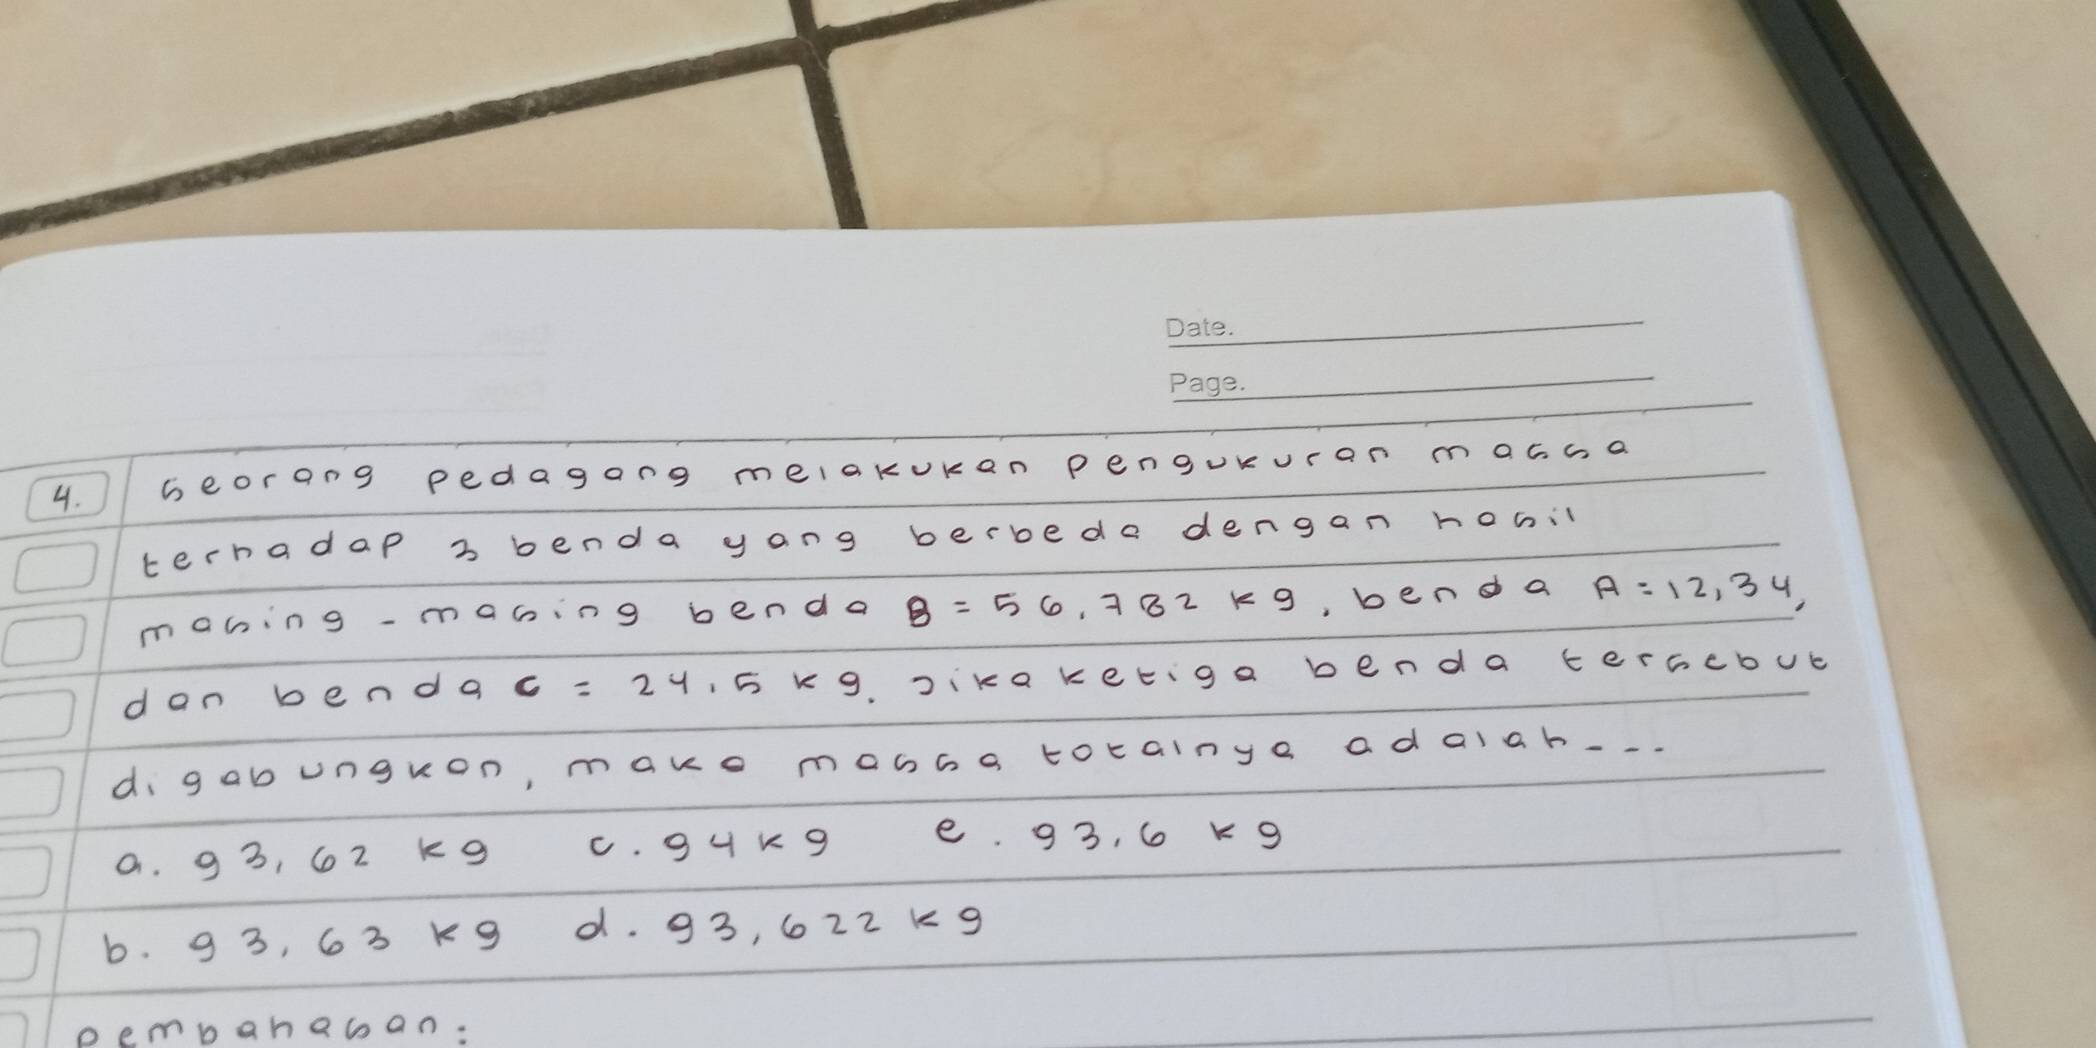 Date.
Page.
4. seorang pedagang melakukan pengukuran massa
terhadap 3 benda yang berbeda dengan hasil
masing-masing benda B = 56,782 kg, benda A = 12,34,
dan benda C = 24,5 kg. Jika ketiga benda tersebut
digabungkan, maka massa totalnya adalah...
a. 93,62 kg c. 94 kg e. 93,6 kg
b. 93,63 kg d. 93,622 kg
pembahasan: